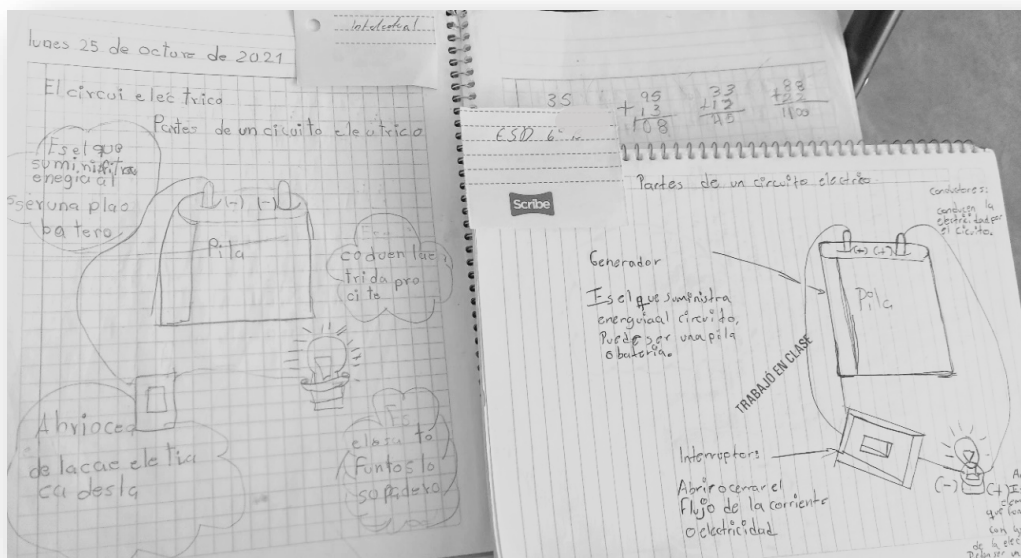 lunes 25 de octure de 2021
El circui electrico
Partes de un circuito eleutrico
Es el que
suminiditra
enegia al
ser una plao
batero
(-) (-)
Pila
coduen lae
trida pro
cito
Abriocea
de lacae eletia
ca desla
elosu to
funtoslo
sopadero
Intelectual
35
95
+ 13
108
33
+12
45
88
+22
1100
ESD 6°
Scribe
Partes de un circuito electrico
Conductores:
conducen la
electricidad por
el circuito.
Generador
Es el que suministra
energuia al circuito,
Puede ser una pila
o bateria.
(-) (+)
Pila
TRABAJÓ EN CLASE
Interruptor:
Abrir o cerrar el
Flujo de la corriente
o electricidad
(-)
(+)
que
con
de la elec